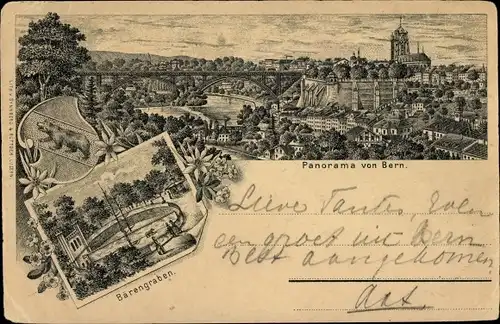 Panorama von Bern.
Lieve Tante, Even
een groet uit Bern
Best aangekomen
Aat.
Bärengraben.